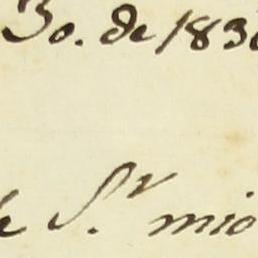 30. de 183
S.r mio